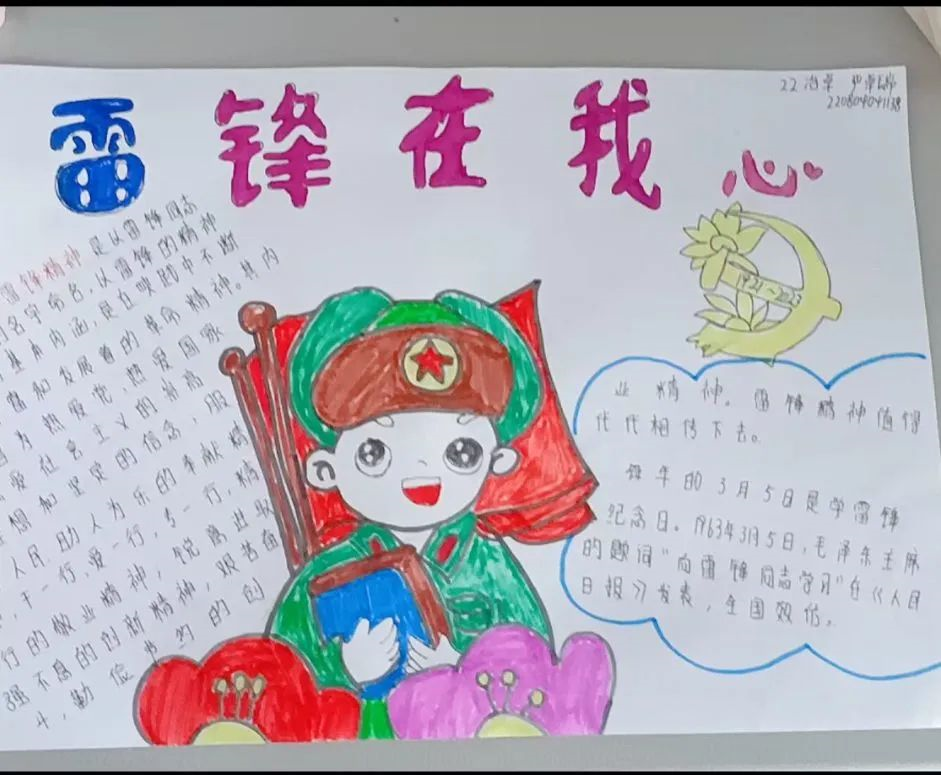 雷锋在我心
22冶
220804041138
雷锋精神是以雷锋同志
的名字命名,以雷锋的精神
基本内涵,是在实践中不断
富和发展着的革命精神。其内
为热爱党、热爱国家
爱社会主义的崇高
想和坚定的信念,服
人民、助人为乐的奉献精
,干一行、爱一行,专一行、精
行的敬业精神,锐意进取
强不息的创新精神,艰苦奋
斗,勤俭节约的创
1921~2023
业精神。雷锋精神值得
代代相传下去。
每年的3月5日是学雷锋
纪念日。1963年3月5日,毛泽东主席
的题词“向雷锋同志学习”在《人民
日报》发表,全国效仿。